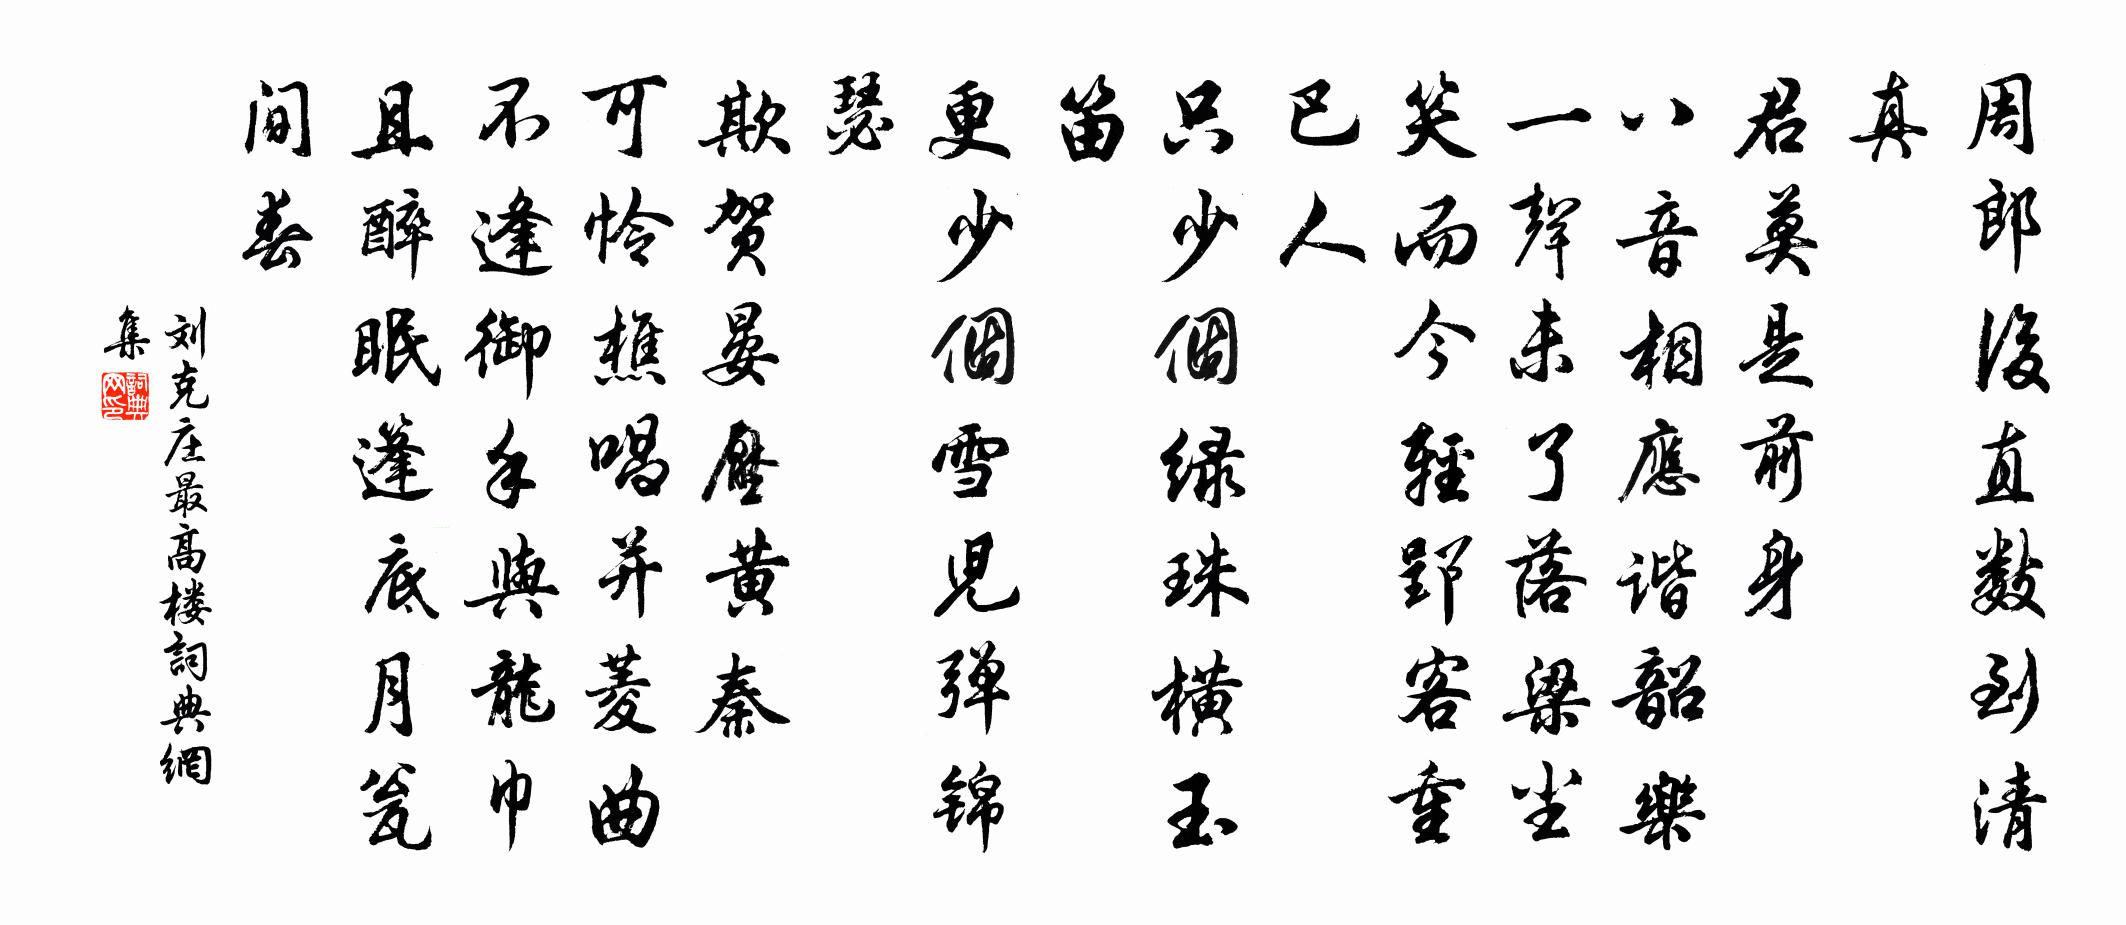 周郎後直數到清
真
君莫是前身
八音相應諧韶樂
一聲未了落梁尘
笑而今輕郢客重
巴人
只少個绿珠橫玉
笛
更少個雪兒弹锦
瑟
欺贺晏壓黄秦
可怜樵唱并菱曲
不逢御手與龍巾
且醉眠篷底月瓮
间春
刘克庄最高楼詞典網
集
詞典网印